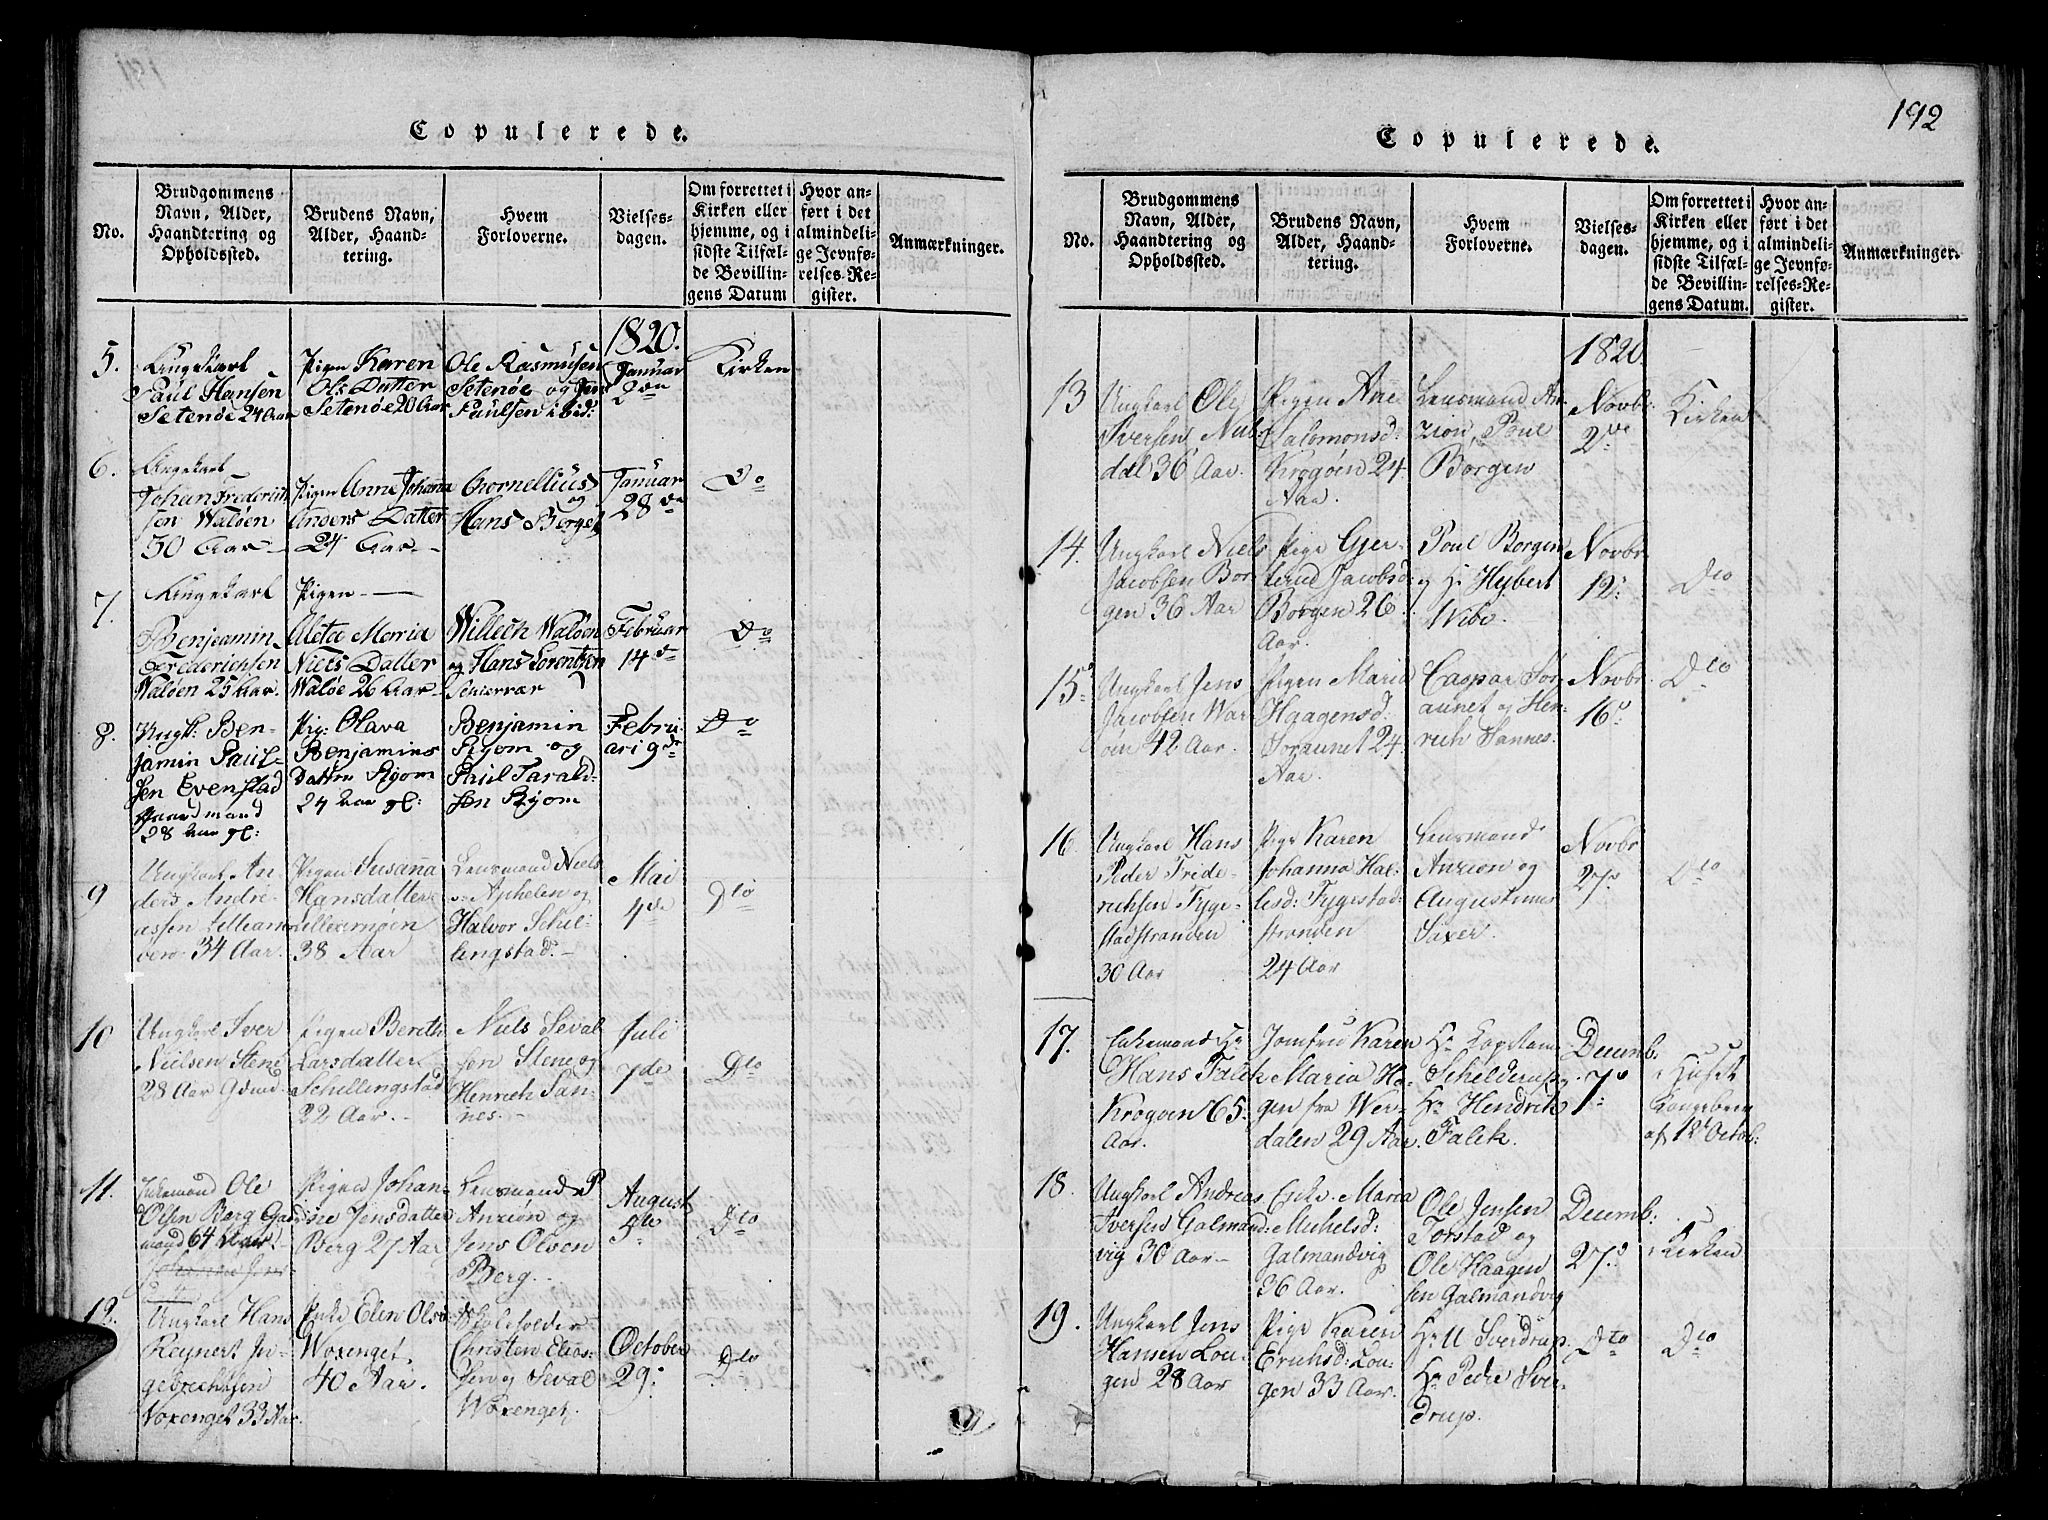 192
Copulerede.
No.
Brudgommens
Navn, Alder,
Haandtering og
Opholdssted.
Brudens Navn,
Alder, Haand-
tering.
Hvem
Forloverne.
Vielses-
dagen.
Om forrettet i
Kirken eller
hjemme, og i
sidste Tilfæl-
de Bevillin-
gens Datum
Hvor an-
ført i det
almindeli-
ge Jevnfø-
relses-Re-
gister.
Anmærkninger.
1820.
5.
Ungekarl
Paul Hansen
Setenöe 24 Aar
Pigen Karen
Ols Datter
Setenöe 20 Aar
Ole Rasmusen
Setenöe og Jens
Paulsen ibid:
Januar
2den
Kirken
6.
Ungekarl
Johan Frederich
sen Walöen
30 Aar
Pigen Anne Johana
Anders Datter
24 Aar
Cornellius
og
Hans Berges
Januar
28de
Do
7.
Ungekarl
Benjeamin
Frederichsen
Walöen 25 Aar
Pigen
Aletæ Merria
Niels Datter
Walöe 26 Aar
Willech Walöen
og Hans Lorentzen
Skiervær
Februar
14de
Do
8.
Ungk: Ben-
jamin Paul-
sen Evenstad
Gaardmand
28 Aar gl:
Pig: Olava
Benjamins
Datter Ryom
24 Aar gl:
Benjamin
Ryom og
Paul Tarald-
sen Ryom
Febru
ari 9de
Do
9
Ungkarl An
ders Andre-
assen
34 Aar.
Pigen Susanna
Hansdatter
38 Aar
Lensmand Niels
Aphelen og
Halvor Schil-
lingstad.
Mai
4de
Dto
10
Ungkarl Iver
Nielsen Stene
28 Aar
Pigen Bereth
Larsdatter
Schillingstad
22 Aar.
Niels Seval
sen Stene og
Henrich San-
nes.
Juli
7de
Dto
11.
Enkemand Ole
Olsen Berg Gaard
mand 64 Aar
Pigen Johan-
ne Jensdatter
Berg 27 Aar
Lensmand P
Anzión og
Jens Olsen
Berg.
August
5te
Dto
12.
Ungkarl Hans
Reynert In-
gebrechtsen
Woxenget 33 Aar.
Enke Elen Olsd
Woxenget,
40 Aar.
Skoleholder
Christen Elias-
sen og Seval
Woxenget.
October
29:
Dto
Copulerede.
No.
Brudgommens
Navn, Alder,
Haandtering og
Opholdssted.
Brudens Navn,
Alder, Haand-
tering.
Hvem
Forloverne.
Vielses-
dagen.
Om forrettet i
Kirken eller
hjemme, og i
sidste Tilfæl-
de Bevillin-
gens Datum.
Hvor an-
ført i det
almindeli-
ge Jevnfø-
relses-Re-
gister.
Anmærkninger.
1820.
13
Ungkarl Ole
Iversen Nub-
dal 36 Aar.
Pigen Ane
Salomonsd:
Krogöen 24
Aar.
Lensmand An-
zion, Poul
Borgen
Novbr.
2de
Kirken
14.
Ungkarl Niels
Jacobsen Bor-
gen 36 Aar
Pige Gjer-
terud Jacobsd:
Borgen 26
Aar.
Poul Borgen
og Hr Hybert
Wibe
Novbr
12:
Dto
15
Ungkarl Jens
Jacobsen War-
öin 42 Aar.
Pigen Maria
Haagensd.
Soraunet 24
Aar.
Caspar Sor-
aunet og Hen-
rich Sannes.
Novbr
16
Dto
16.
Ungkarl Hans
Peder Fride-
richsen Tyge-
stadstranden
30 Aar
Pige Karen
Johanna Hal-
lesd: Tygestad-
stranden
24 Aar
Lensmand
Anzion og
Augustinus
Saxer.
Novbr
27
Dto
17.
Enkemand Hr
Hans Falck
Krogöen 65
Aar.
Jomfru Karen
Maria Ha-
gen fra Wer-
dalen 29 Aar
Hr Kaptain
Schelderup og
Hr Hendrik
Falck.
Decemb.
7
i Huset
Kongebrev
af 12t Octob:
18.
Ungkarl Andreas
Iversen Galmand-
vig 30 Aar
Enke Maria
Michelsd:
Galmandvig
36 Aar.
Ole Jensen
Torstad og
Ole Haagen
sen Galmandvig
Decemb:
27
i Kirken
19.
Ungkarl Jens
Hansen Lou-
gen 28 Aar
Pige Karen
Erichsd: Lou-
gen 33 Aar.
Hr U Sverdrup.
Hr Peder Sver-
drup.
Dto
Dto